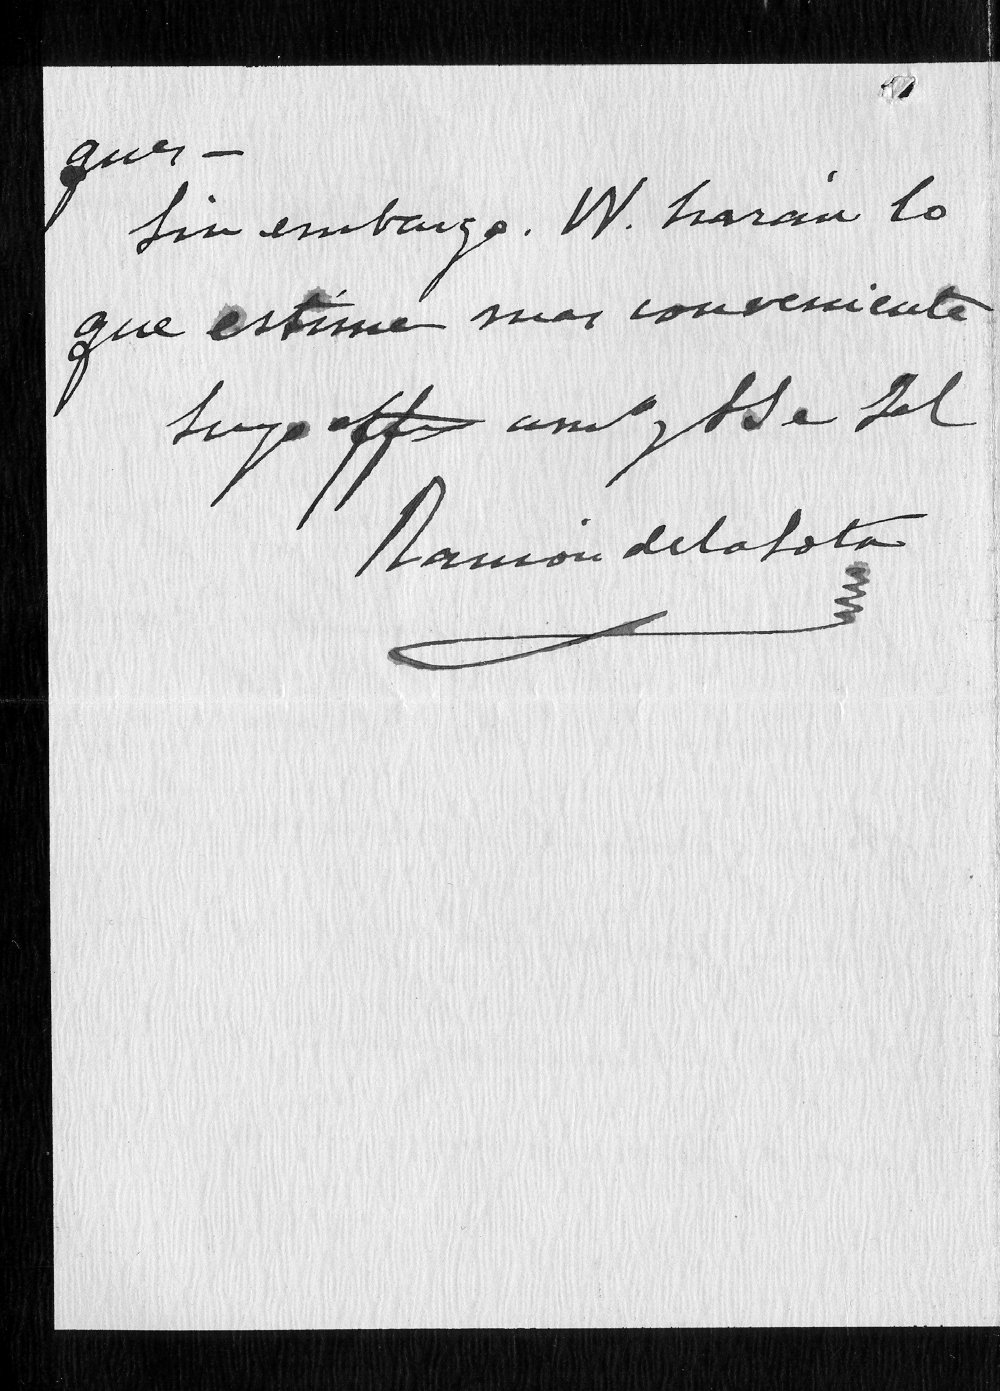 ques —
Sin embargo. VV. harán lo
que estimen mas conveniente
Suyo affmo amº y SS e
Ramón de la Sota